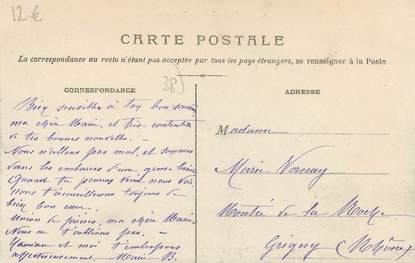 12-€
CARTE POSTALE
La correspondance au recto n'étant pas acceptée par tous les pays étrangers, se renseigner à la Poste
38
CORRESPONDANCE
ADRESSE
Bien sensibles à ton bon souvenir
ma chère Marie, et très contents
de tes bonnes nouvelles. -
Nous n'allons pas mal, et sommes
dans les embarras d'un
Quand tu pourras venir nous voir
nous t'accueillerons toujours de
bien bon cœur.
Union de prières, ma chère Marie.
Nous ne t'oublions pas. -
et moi t'embrassons
affectueusement. Marie B.
Madame
Marie
Montée de la
Grigny (Rhône)